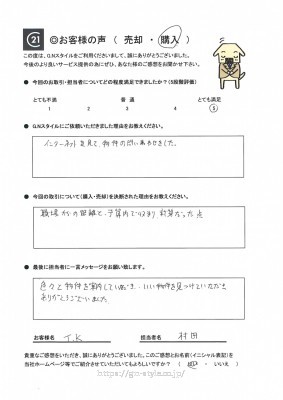 21
◎お客様の声 ( 売却 ・ 購入 )
この度は、G.Nスタイルをご利用くださいまして、誠にありがとうございました。
今後のより良いサービス提供の為にぜひ、あなた様のご感想をお聞かせ下さい。
● 今回のお取引・担当者についてどの程度満足できましたか？(5段階評価)
とても不満 普 通 とても満足
1 2 3 4 5
● G.Nスタイルにご依頼いただきました理由をお教えください。
インターネットを見て、物件の問い合わせをした。
● 今回の取引について(購入・売却)を決断された理由をお教えください。
職場からの距離と、予算内で
だった点
● 最後に担当者に一言メッセージをお願い致します。
色々と物件を案内していただき、いい物件を見つけていただき
ありがとうございました。
お客様名 T.K 担当者名 村田
貴重なご感想をいただき、誠にありがとうございました。このご感想とお名前(イニシャル表記)を
当社ホームページ等でご紹介させていただいてもよろしいですか？ ( はい ・ いいえ )
https://gn-style.co.jp/